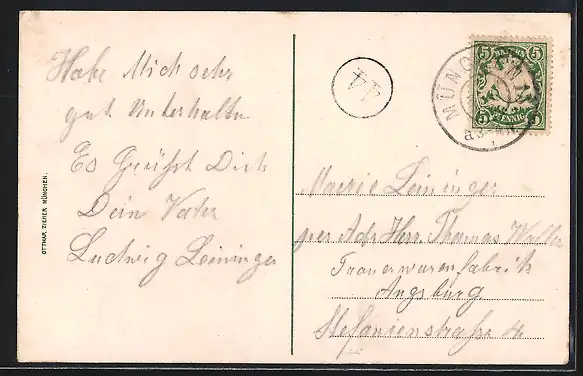 Habe Mich sehr
gut Unterhalten
Es Grüßt Dich
Dein Vater
Ludwig Leininger
OTTMAR ZIEHER MÜNCHEN.
44
5 BAYERN 5
5 PFENNIG 5
MÜNCHEN
Marie Leininger
per Adr Herr Thomas Waller
Trauerwarenfabrik
Augsburg
Stefanienstraße 4